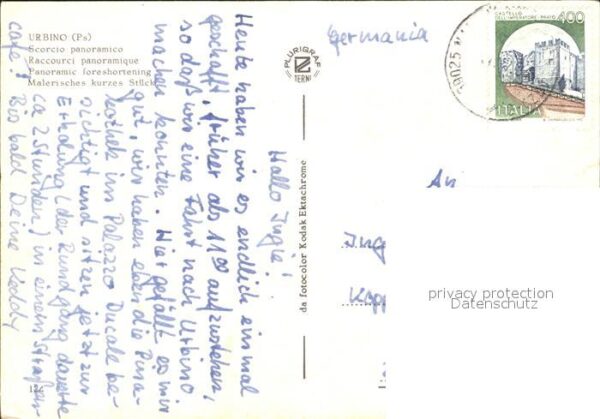 URBINO (Ps)
Scorcio panoramico
Raccourci panoramique
Panoramic foreshortening
Malerisches kurzes Stück
Hallo Ingie!
Heute haben wir es endlich einmal
geschafft, früher als 11⁰⁰ aufzustehen,
so daß wir eine Fahrt nach Urbino
machen konnten. Hier gefällt es mir
gut, wir haben eben die Pina-
kothek im Palazzo Ducale be-
sichtigt und sitzen jetzt zur
Erholung (der Rundgang dauerte
ca 2 Stunden) in einem Straßen-
café! Bis bald Deine
124
PLURIGRAF
TERNI
da fotocolor Kodak Ektachrome
Germania
CASTELLO
DELL'IMPERATORE - PRATO
400
ITALIA
An
Ing
privacy protection
Datenschutz